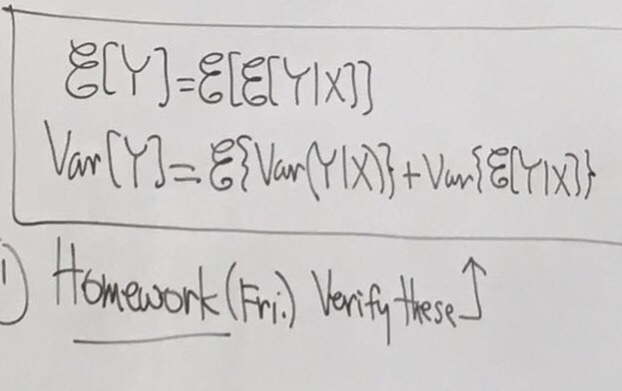 ℰ[Y]=ℰ[ℰ[Y|X]]
Var[Y]=ℰ{Var(Y|X)}+Var{ℰ[Y|X]}
1) Homework (Fri.) Verify these ↑